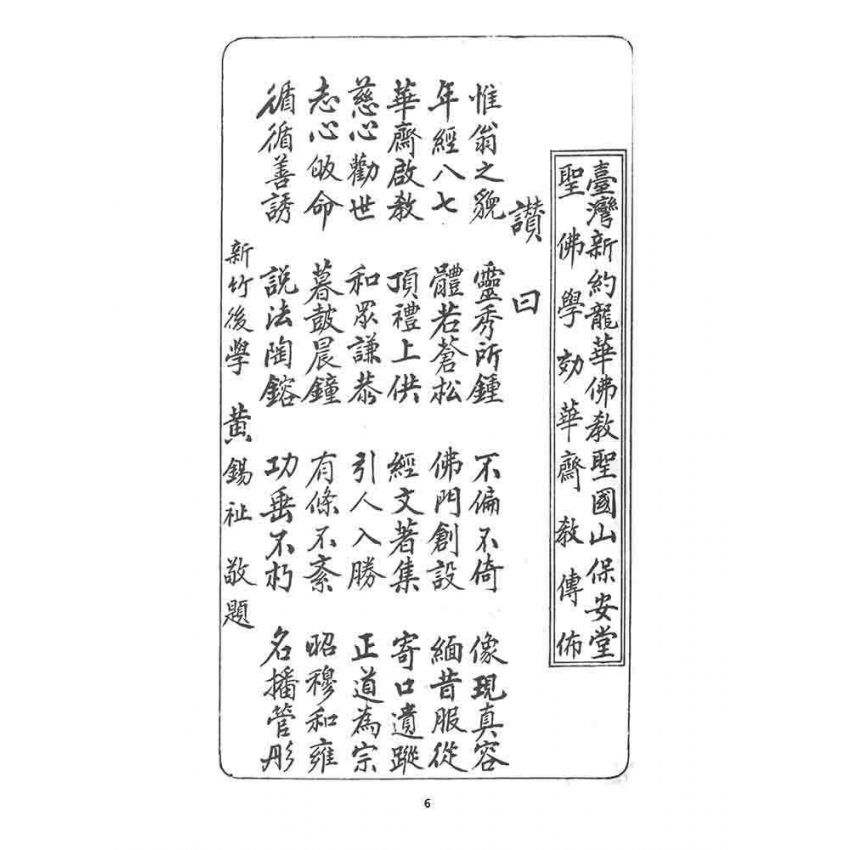 臺灣新約龍華佛教聖國山保安堂
聖佛學効華齋教傳佈
讃曰
惟翁之貌 靈秀所鍾 不偏不倚 像現真容
年經八七 體若蒼松 佛門創設 緬昔服從
華齋啟教 頂禮上供 經文著集 寄口遺蹤
慈心勸世 和眾謙恭 引人入勝 正道為宗
志心皈命 暮鼓晨鐘 有條不紊 昭穆和雍
循循善誘 說法陶鎔 功垂不朽 名播管彤
新竹後學 黃錫祉 敬題
6